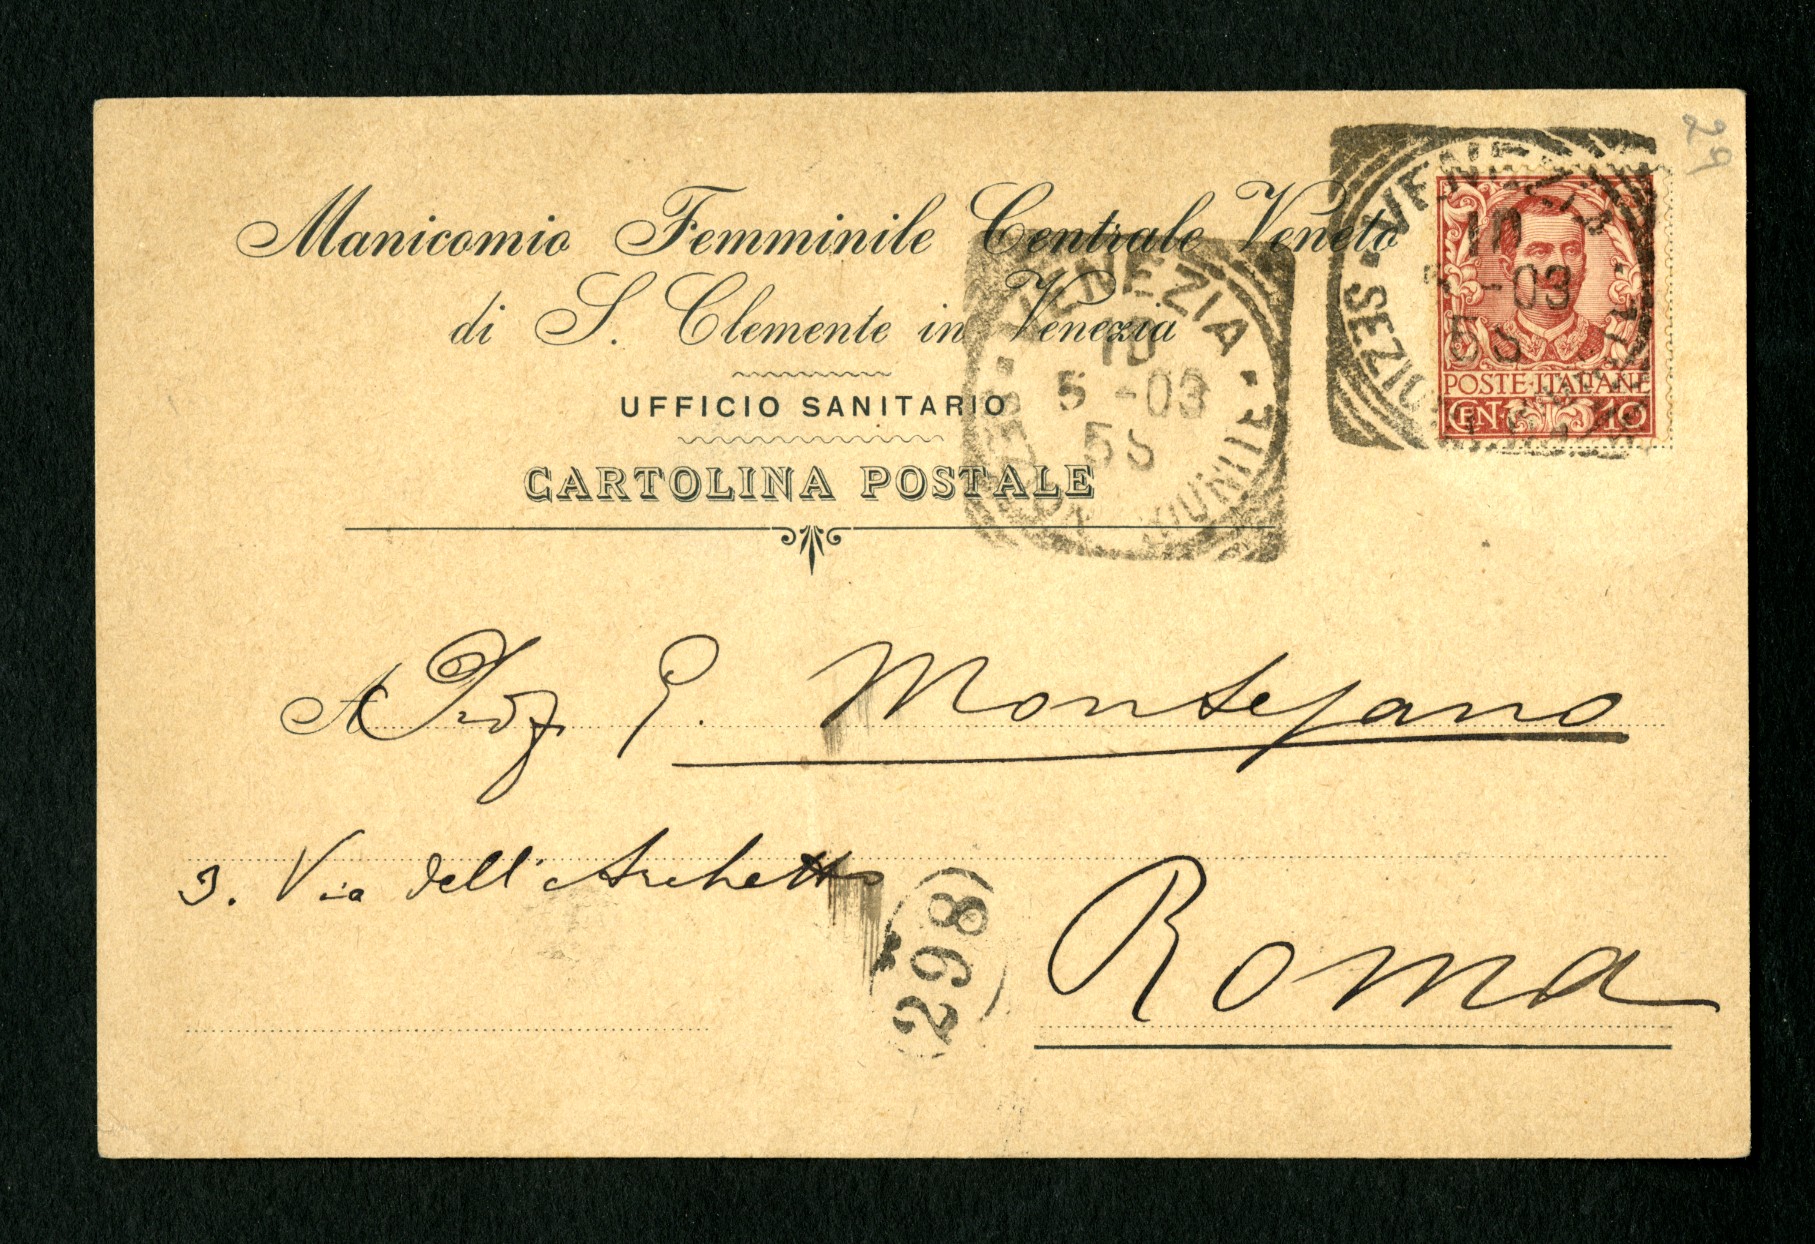 Manicomio Femminile Centrale Veneto
di S. Clemente in Venezia
UFFICIO SANITARIO
CARTOLINA POSTALE
VENEZIA
10
5 -03
5S
VENEZIA
10
-03
5S
SEZIONI RIUNITE
POSTE·ITALIANE
CEN·10
29
A Prof G. Montesano
3. Via dell'Archetto
Roma
298